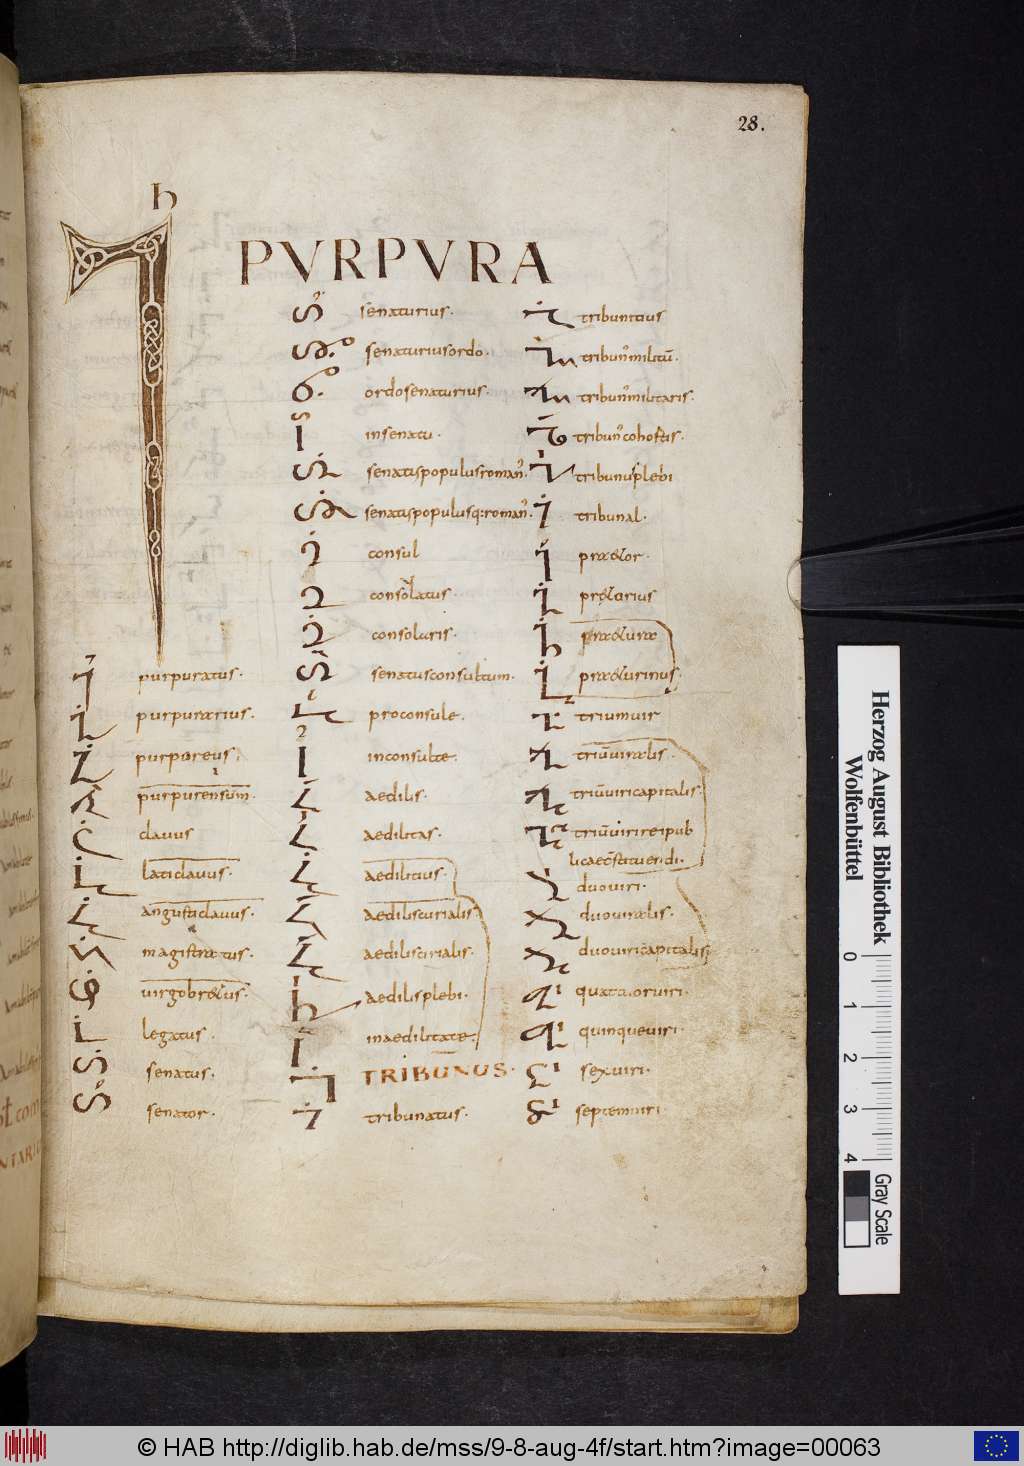 28.
h
PVRPVRA
purpuratus.
purpurarius.
purpureus.
purpurensum.
clavus
laticlavus.
angusticlavus.
magistratus.
legatus.
senatus.
senator.
senaturius.
senaturiusordo.
ordosenaturius.
insenatu.
senatuspopulusroman'.
senatuspopulusq:roman'.
consul
consolatus.
consolaris.
senatusconsultum.
proconsule.
inconsulte.
aedilis.
aedilitas.
aedilitius.
aediliscurialis.
aediliscirialis.
aedilisplebi.
inaedilitate.
TRIBUNUS.
tribunatus.
tribunitius
tribun'militū.
tribun'militaris.
tribun'cohortis.
tribunusplebi
tribunal.
praetor.
pretorius
praeturae
praeturinus.
triumvir
triūviralis.
triūviricapitalis.
triūvirireipub
licaecstituendi.
duoviri.
duoviralis.
duoviricapitalis.
quattuorviri.
quinqueviri.
sexviri.
septemviri
Herzog August Bibliothek
Wolfenbüttel
0
1
2
3
4
Gray Scale
© HAB http://diglib.hab.de/mss/9-8-aug-4f/start.htm?image=00063